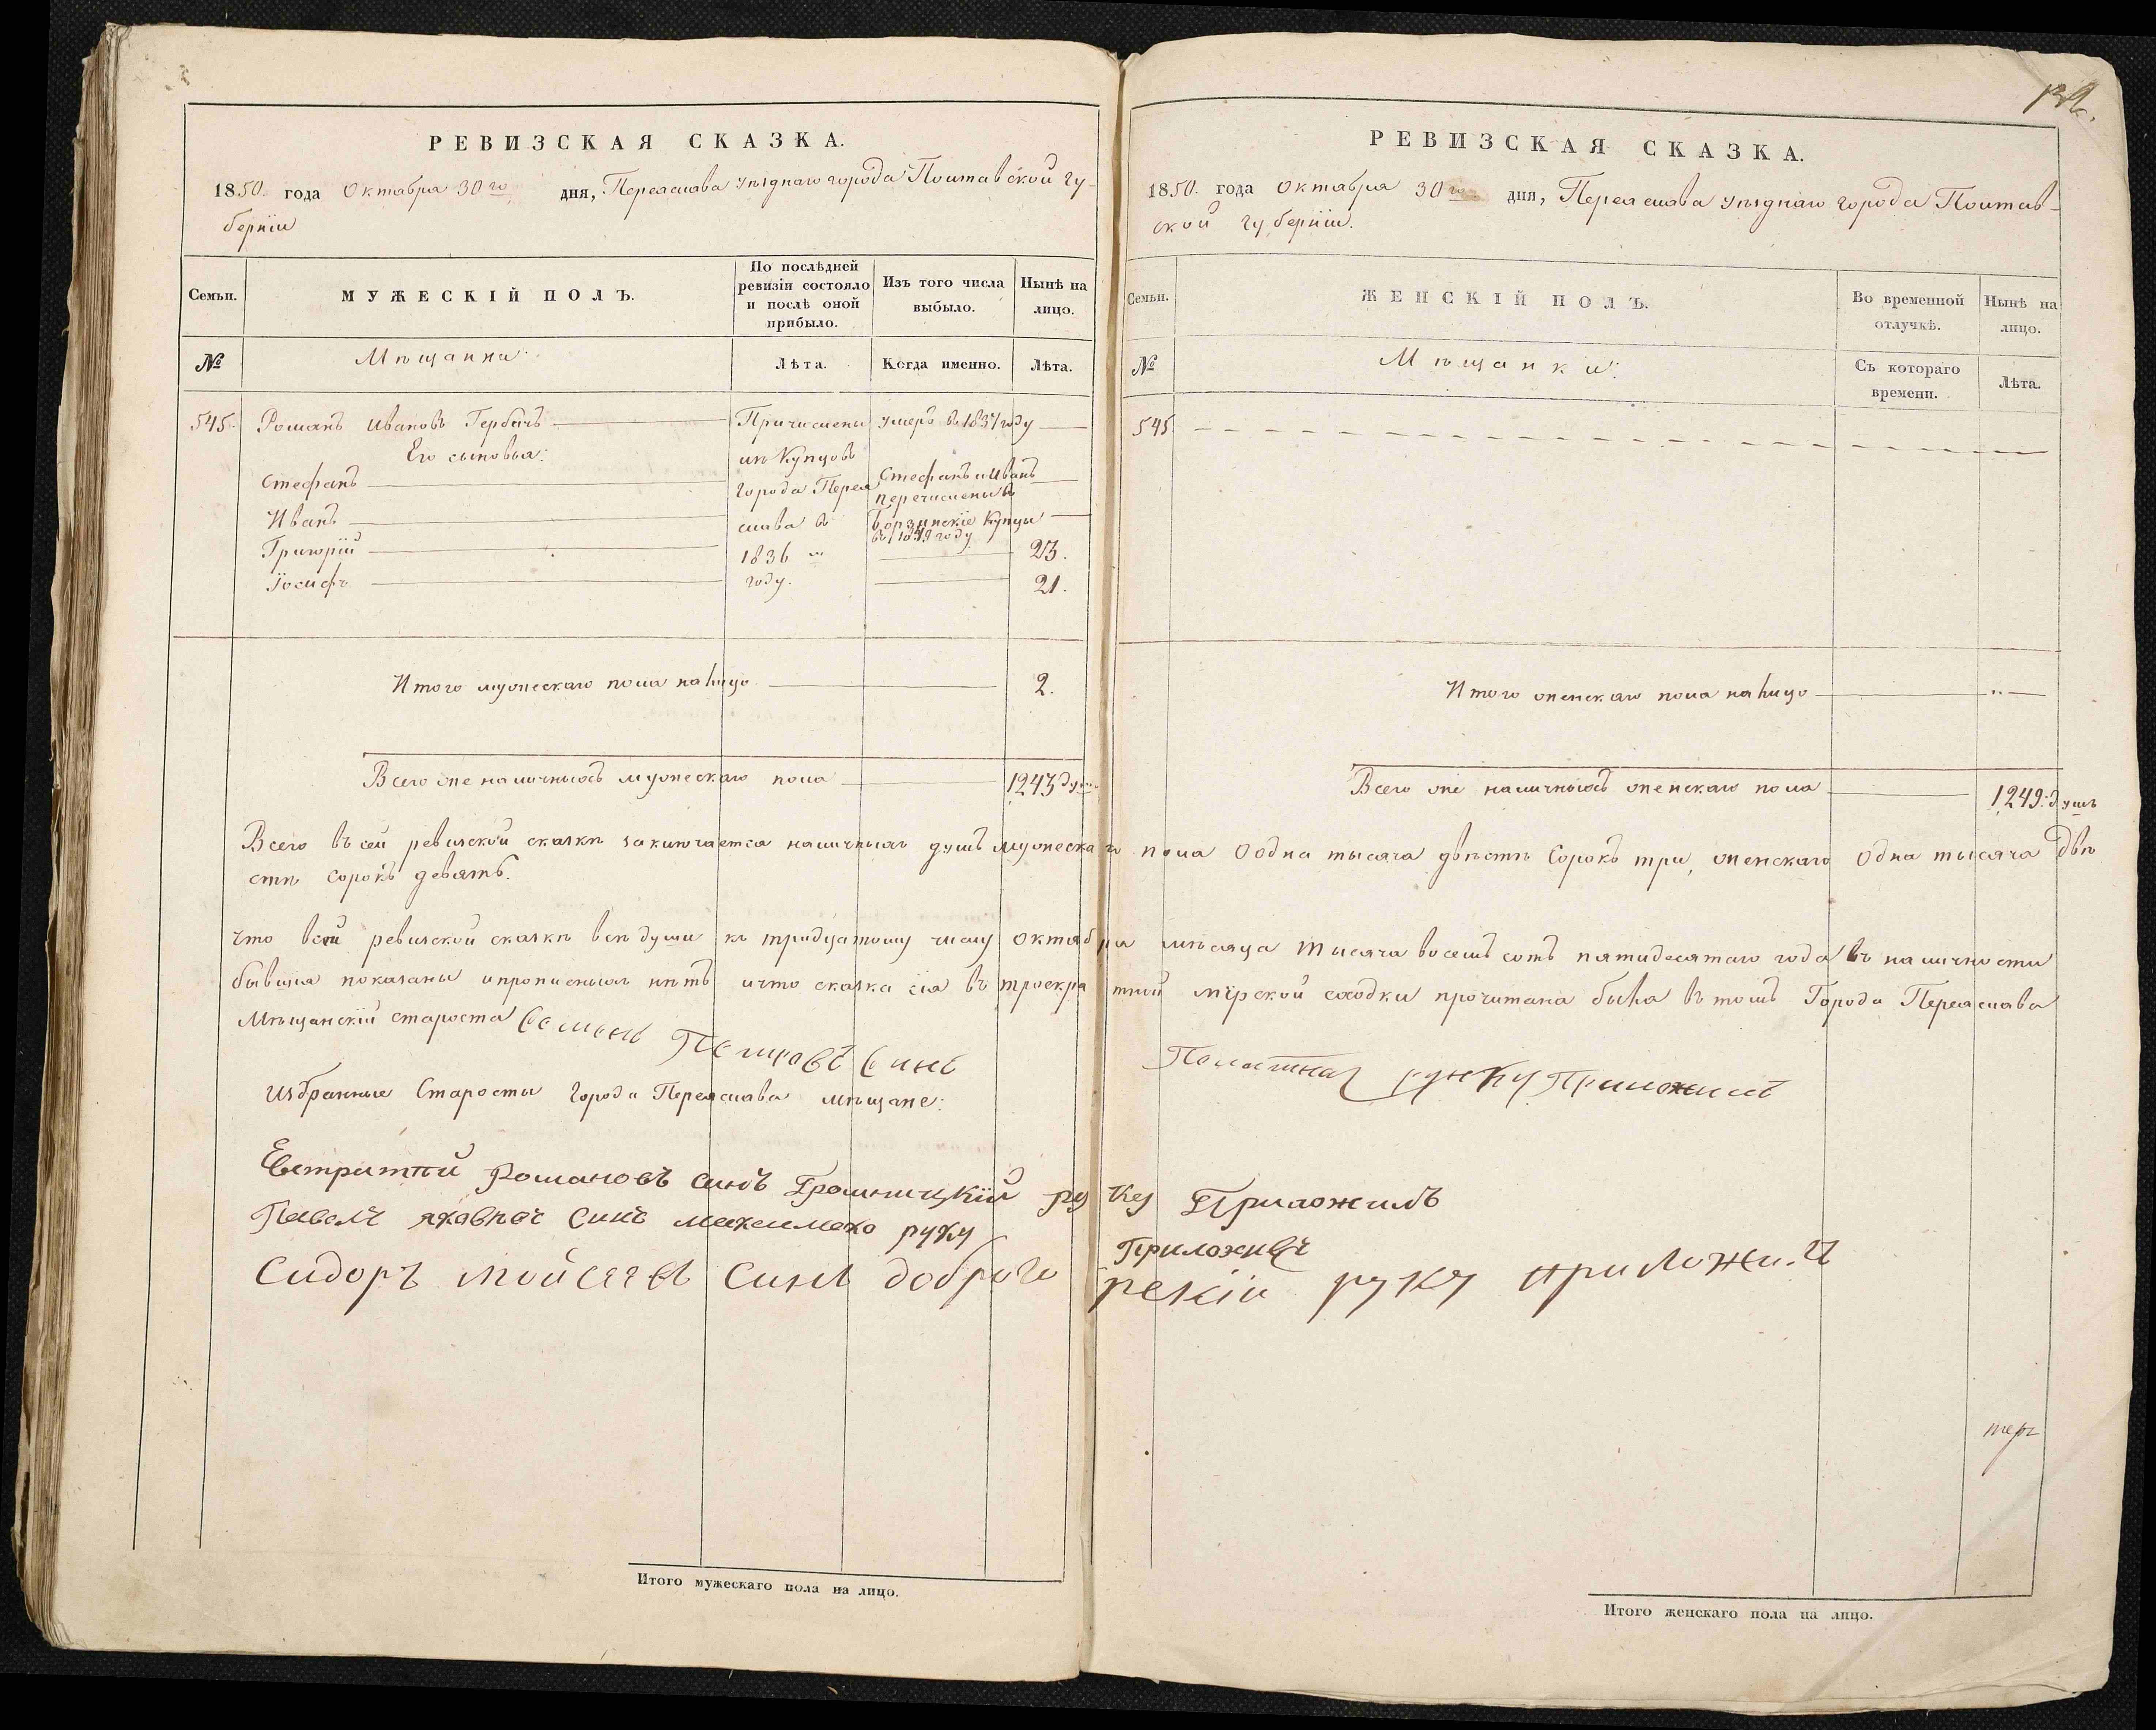 РЕВИЗСКАЯ СКАЗКА.
1850. года Октября 30го дня, Переяслава уѣзднаго города Полтавской гу-
берніи
Семьи.
МУЖЕСКІЙ ПОЛЪ.
По послѣдней ревизіи состояло и послѣ оной прибыло.
Изъ того числа выбыло.
Нынѣ на лицо.
№
Мѣщанки
Лѣта.
Когда именно.
Лѣта.
545. Романъ Ивановъ Гербачъ Причислены умеръ въ 1837 году
Его сыновья: изъ Купцовъ
Стефанъ города Перея Стефанъ и Иванъ перечислены въ
Иванъ слава въ Борзнинскіе Купцы въ 1849 году
Григорій 1836 м 23.
Іосифъ году. 21.
Итого мужескаго пола на лицо 2.
Всего же наличныхъ мужескаго пола 1243 душ
РЕВИЗСКАЯ СКАЗКА.
1850. года Октября 30го дня, Переяслава уѣзднаго города Полтав-
ской губерніи.
Семьи.
ЖЕНСКІЙ ПОЛЪ.
Во временной отлучкѣ.
Нынѣ на лицо.
№
Мѣщанки:
Съ котораго времени.
Лѣта.
545
Итого женскаго пола на лицо "
Всего же наличныхъ женскаго пола 1249. душъ
Всего въ сей ревизской сказкѣ заключается наличныхъ душъ мужескаго пола Одна тысяча двѣстѣ Сорокъ три, женскаго Одна тысяча двѣ
стѣ Сорокъ девять.
Что всей ревизской сказкѣ всѣ души къ тридцатому числу октября мѣсяца тысяча восемь сотъ пятидесятаго года въ наличности
бывшія показаны и прописныхъ нѣтъ и что сказка сія въ троекратной мірской сходки прочитана была въ томъ Города Переяслава
Мѣщанскій староста Семенъ Петровъ Синъ руку Приложилъ
Избранные Старосты города Переяслава мѣщане:
Евтратий Романовъ синъ Грамницкій руку Приложилъ
Павелъ Яковлевъ Синъ Максимеко руку Приложивъ
Сидоръ Мойсяевъ Синъ доброгорскій руку приложилъ
Итого мужескаго пола на лицо.
Итого женскаго пола на лицо.